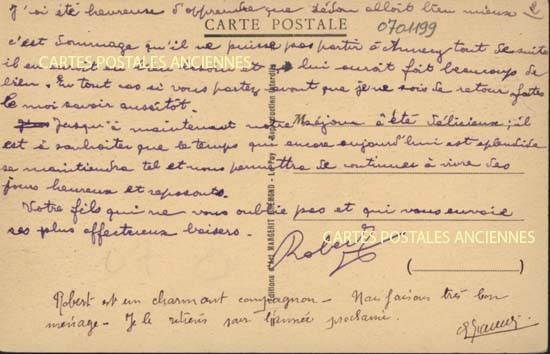 J'ai été heureuse d'apprendre que dédou allait bien mieux
CARTE POSTALE
0701199
c'est dommage qu'il ne puisse pas partir à Annecy tout de suite
il en et lui aurait fait beaucoup de
CARTES POSTALES ANCIENNES
bien. En tout cas si vous partez avant que je ne sois de retour faites
le moi savoir aussitôt.
Jusqu'à maintenant notre séjour a été délicieux; il
est à souhaiter que le temps qui encore aujourd'hui est splendide
se maintiendra tel et nous permettra de continuer à vivre des
jours heureux et reposants.
Votre fils qui ne vous oublie pas et qui vous envoie
ses plus affectueux baisers.
Robert
CARTES POSTALES ANCIENNES
Editions d'Art MARGERIT-BREMOND - Le Puy - Reproduction interdite
Robert est un charmant compagnon - Nous faisons très bon
ménage - Je le retiens pour l'année prochaine.